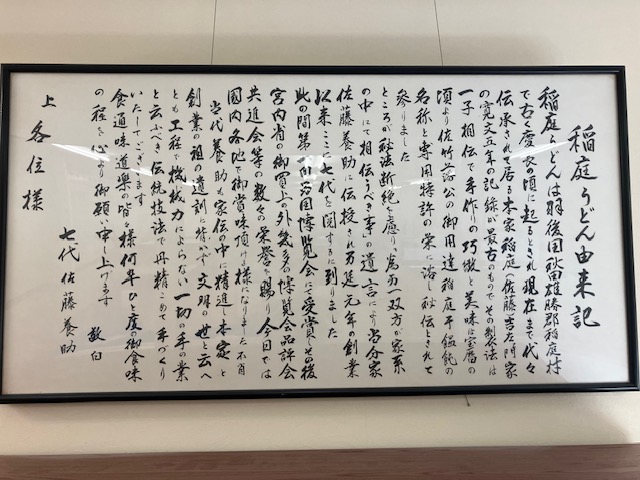 稲庭うどん由来記
稲庭うどんは羽後国秋田雄勝郡稲庭村
で古く慶長の頃に起るとされ現在まで代々
伝承されて居る本家稲庭(佐藤)吉左ヱ門家
の寛文五年の記録が最古のものでその製法は
一子相伝で手作りの巧緻と美味は宝暦の
頃より佐竹藩公の御用達稲庭干饂飩の
名称と専用特許の栄に浴し秘伝とされて
参りました
ところが秘法断絶を慮り為而(双方が家系
の中にて相伝うべき事)の遺言により当分家
佐藤養助に伝授され万延元年の創業
以来ここに七代を閲するに到りました
此の間第一回勧国博覧会に受賞しその後
宮内省の御買上の外幾多の博覧会品評会
共進会等の数々の栄誉を賜り今日では
国内各地で御賞味頂ける様になりました不肖
当代養助も家伝の中に精進し本家と
創業の祖の遺訓に背かず文明の世と云へ
ども工程で機械力によらない一切の手の業
と云ふべき伝統技法で丹精こめて手づくり
いたしてございます
食通味道楽の皆々様何卒ひと度御食味
の程を心より御願い申し上げます 敬白
七代佐藤養助
上各位様